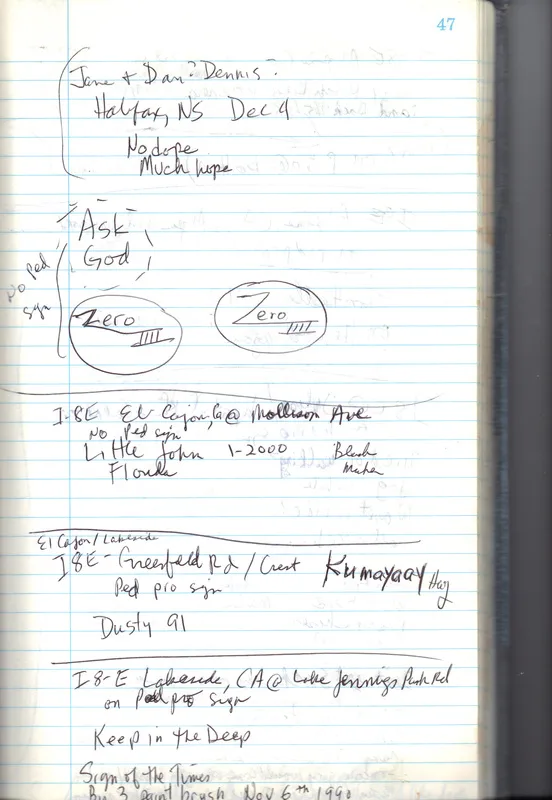 47
Jane + Dan? Dennis -
Halifax, NS Dec 9
No dope
Much hope
Ask
God
No ped
sign
Zero
IIII
Zero
IIII
I-8E El Cajon, Ca @ Mollison Ave
No Ped sign
Little John 1-2000
Florida
El Cajon/Lakeside
I 8E - Greenfield Rd / Crest
Ped pro sign
Kumayaay
Dusty 91
I 8-E Lakeside, CA @ Lake Jennings Park Rd
on Ped pro sign
Keep in the Deep
Sign of the Times
By 3 paint brush Nov 6th 1990